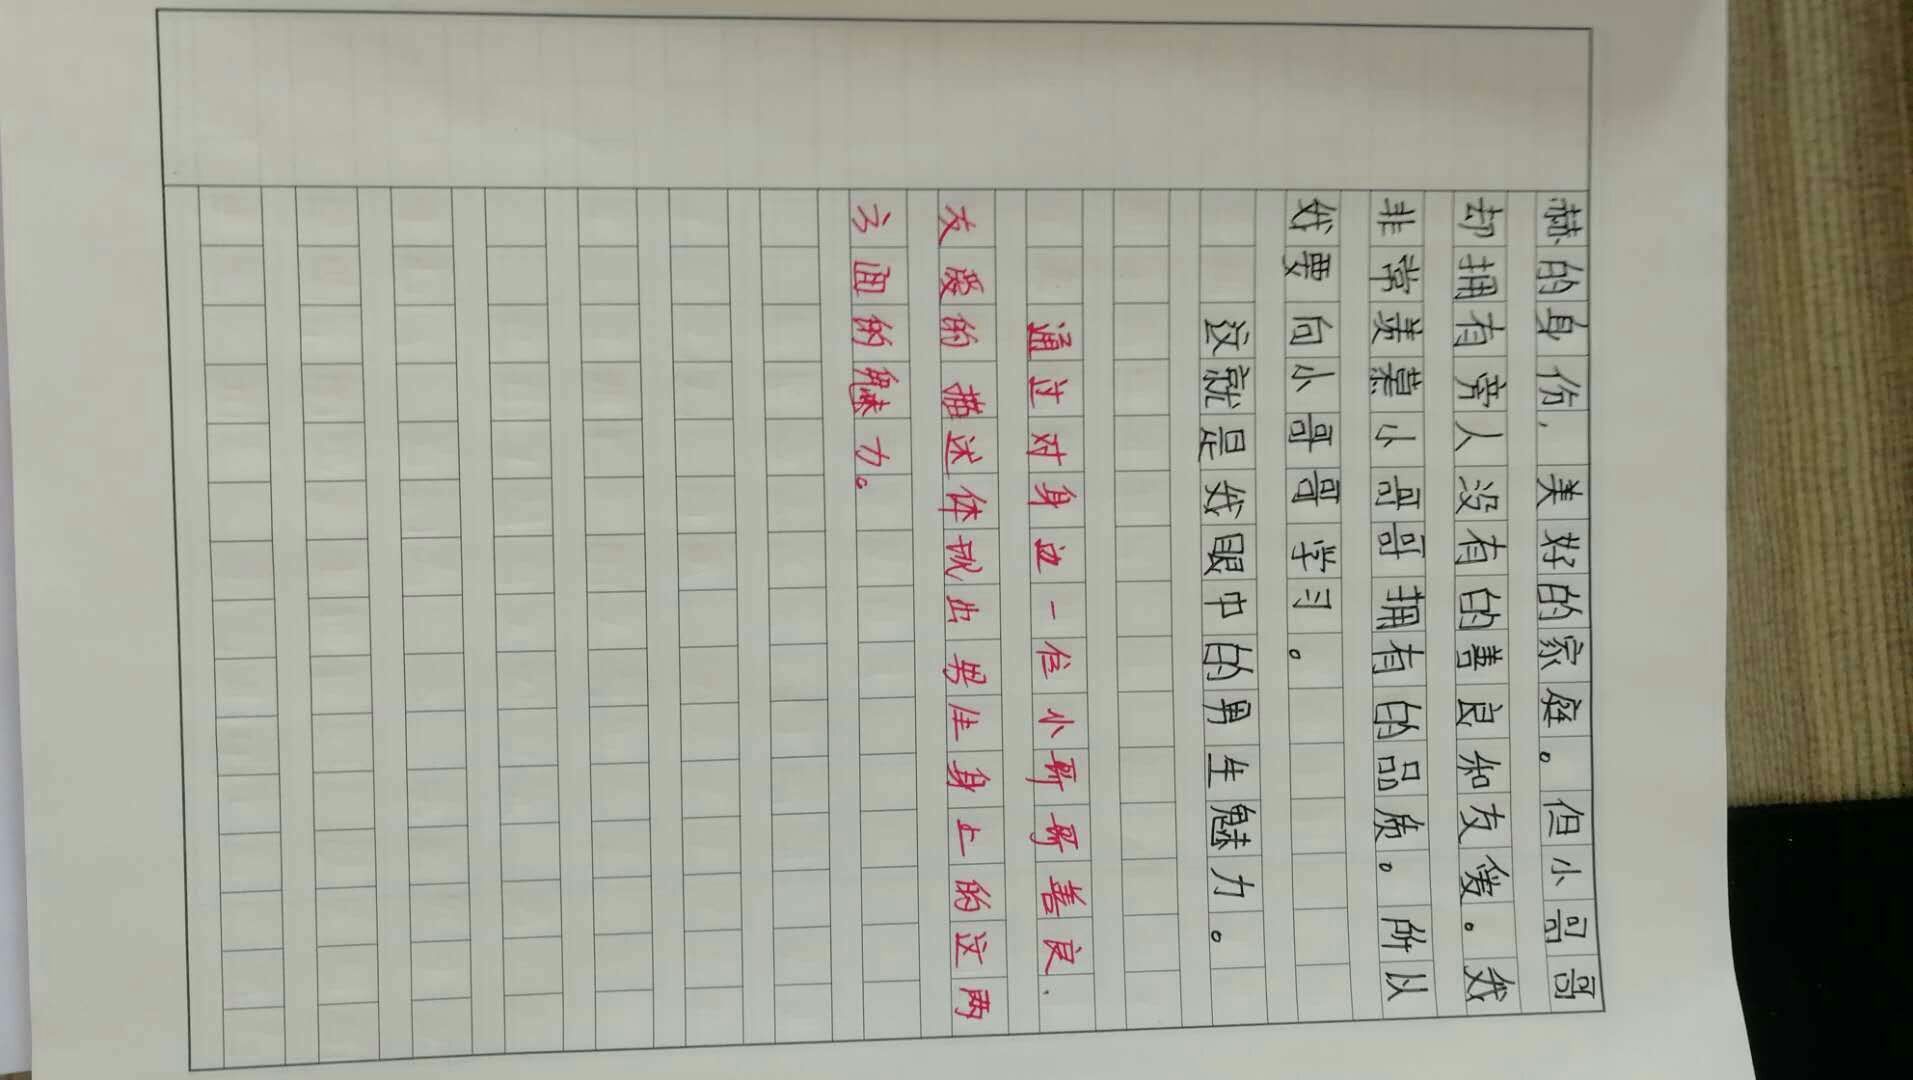 赫的身份，美好的家庭。但小哥哥
却拥有旁人没有的善良和友爱。我
非常羡慕小哥哥拥有的品质。所以
我要向小哥哥学习。
这就是我眼中的男生魅力。
通过对身边一位小哥哥善良、
友爱的描述体现出男生身上的这两
方面的魅力。